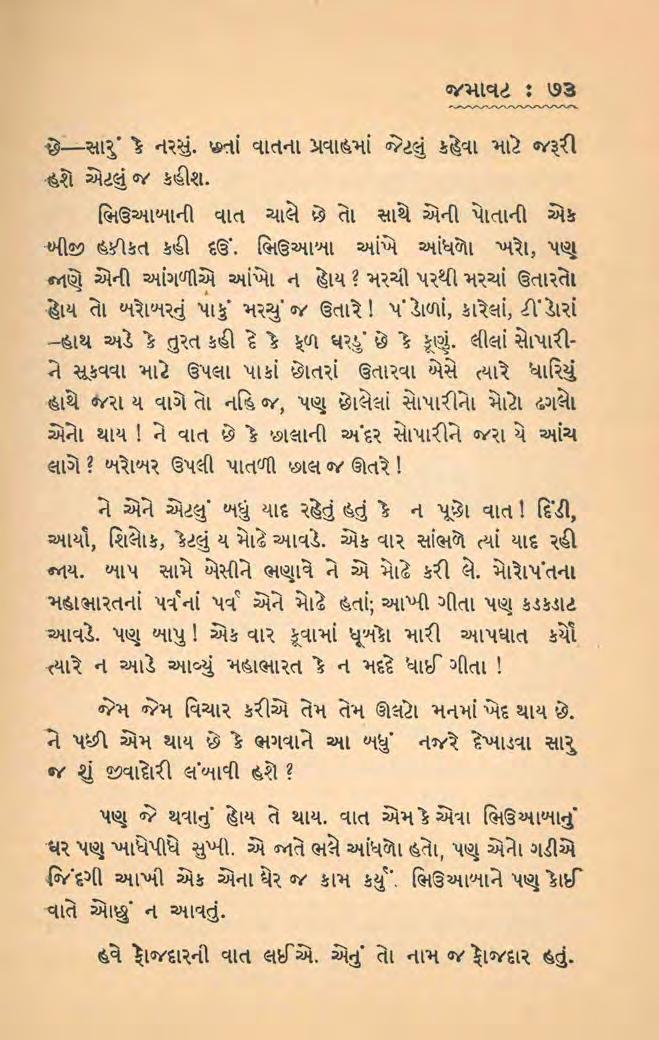 જમાવટ : ૭૩
છે—સારું કે નરસું. છતાં વાતના પ્રવાહમાં જેટલું કહેવા માટે જરૂરી
હશે એટલું જ કહીશ.
ભિઉઆબાની વાત ચાલે છે તો સાથે એની પોતાની એક
બીજી હકીકત કહી દઉં. ભિઉઆબા આંખે આંધળો ખરો, પણ
જાણે એની આંગળીએ આંખો ન હોય ? મરચી પરથી મરચાં ઉતારતો
હોય તો બરોબરનું પાકું મરચું જ ઉતારે ! પંડોળાં, કારેલાં, ટીંડોરાં
–હાથ અડે કે તુરત કહી દે કે ફળ ઘરડું છે કે કૂણું. લીલાં સોપારી-
ને સૂકવવા માટે ઉપલા પાકાં છોતરાં ઉતારવા બેસે ત્યારે ધારિયું
હાથે જરા ય વાગે તો નહિ જ, પણ છોલેલાં સોપારીનો મોટો ઢગલો
એનો થાય ! ને વાત છે કે છાલાની અંદર સોપારીને જરા યે આંચ
લાગે ? બરોબર ઉપલી પાતળી છાલ જ ઊતરે !
ને એને એટલું બધું યાદ રહેતું હતું કે ન પૂછો વાત ! દિંડી,
આર્યા, શિલોક, કેટલું ય મોઢે આવડે. એક વાર સાંભળે ત્યાં યાદ રહી
જાય. બાપ સામે બેસીને ભણાવે ને એ મોઢે કરી લે. મોરોપંતના
મહાભારતનાં પર્વનાં પર્વ એને મોઢે હતાં; આખી ગીતા પણ કડકડાટ
આવડે. પણ બાપુ ! એક વાર કૂવામાં ધૂબકો મારી આપઘાત કર્યો
ત્યારે ન આડે આવ્યું મહાભારત કે ન મદદે ધાઈ ગીતા !
જેમ જેમ વિચાર કરીએ તેમ તેમ ઊલટો મનમાં ખેદ થાય છે.
ને પછી એમ થાય છે કે ભગવાને આ બધું નજરે દેખાડવા સારુ
જ શું જીવાદોરી લંબાવી હશે ?
પણ જે થવાનું હોય તે થાય. વાત એમ કે એવા ભિઉઆબાનું
ઘર પણ ખાધેપીધે સુખી. એ જાતે ભલે આંધળો હતો, પણ એનો ગડીએ
જિંદગી આખી એક એના ઘેર જ કામ કર્યું. ભિઉઆબાને પણ કોઈ
વાતે ઓછું ન આવતું.
હવે ફોજદારની વાત લઈએ. એનું તો નામ જ ફોજદાર હતું.